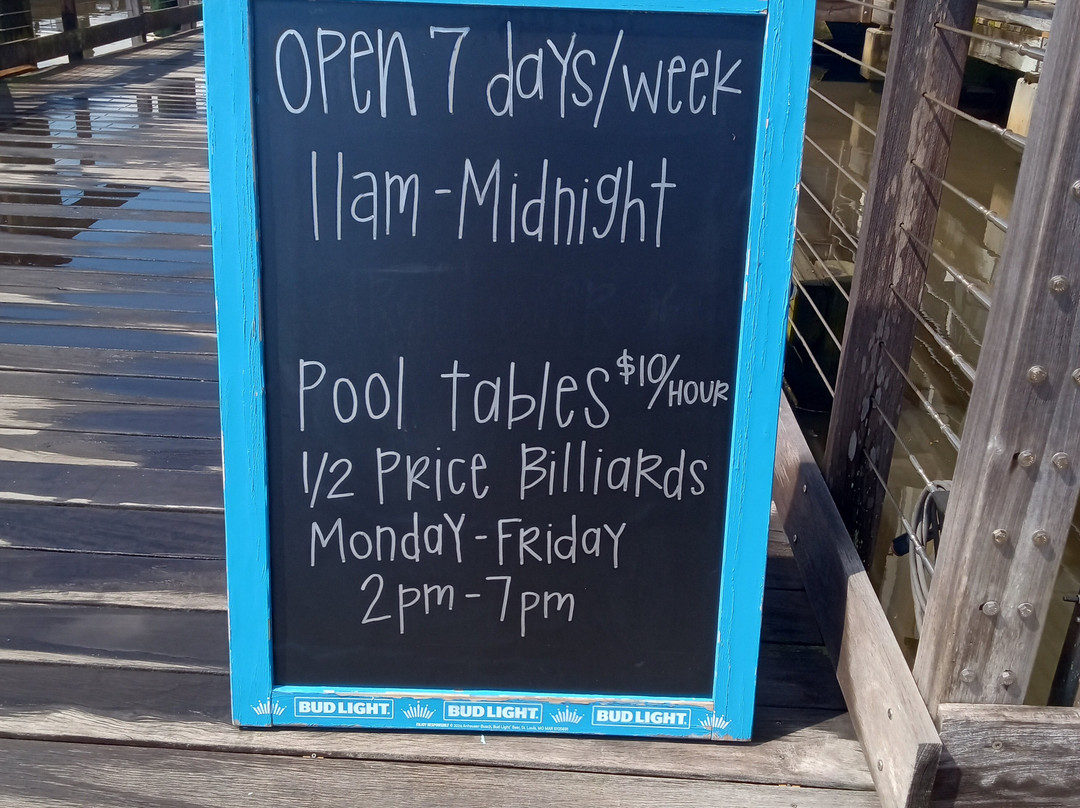 OPEN 7 days/week
11am-Midnight
Pool tables $10/HOUR
1/2 PRICE BilliaRds
Monday-Friday
2pm-7pm
BUD LIGHT. BUD LIGHT. BUD LIGHT.